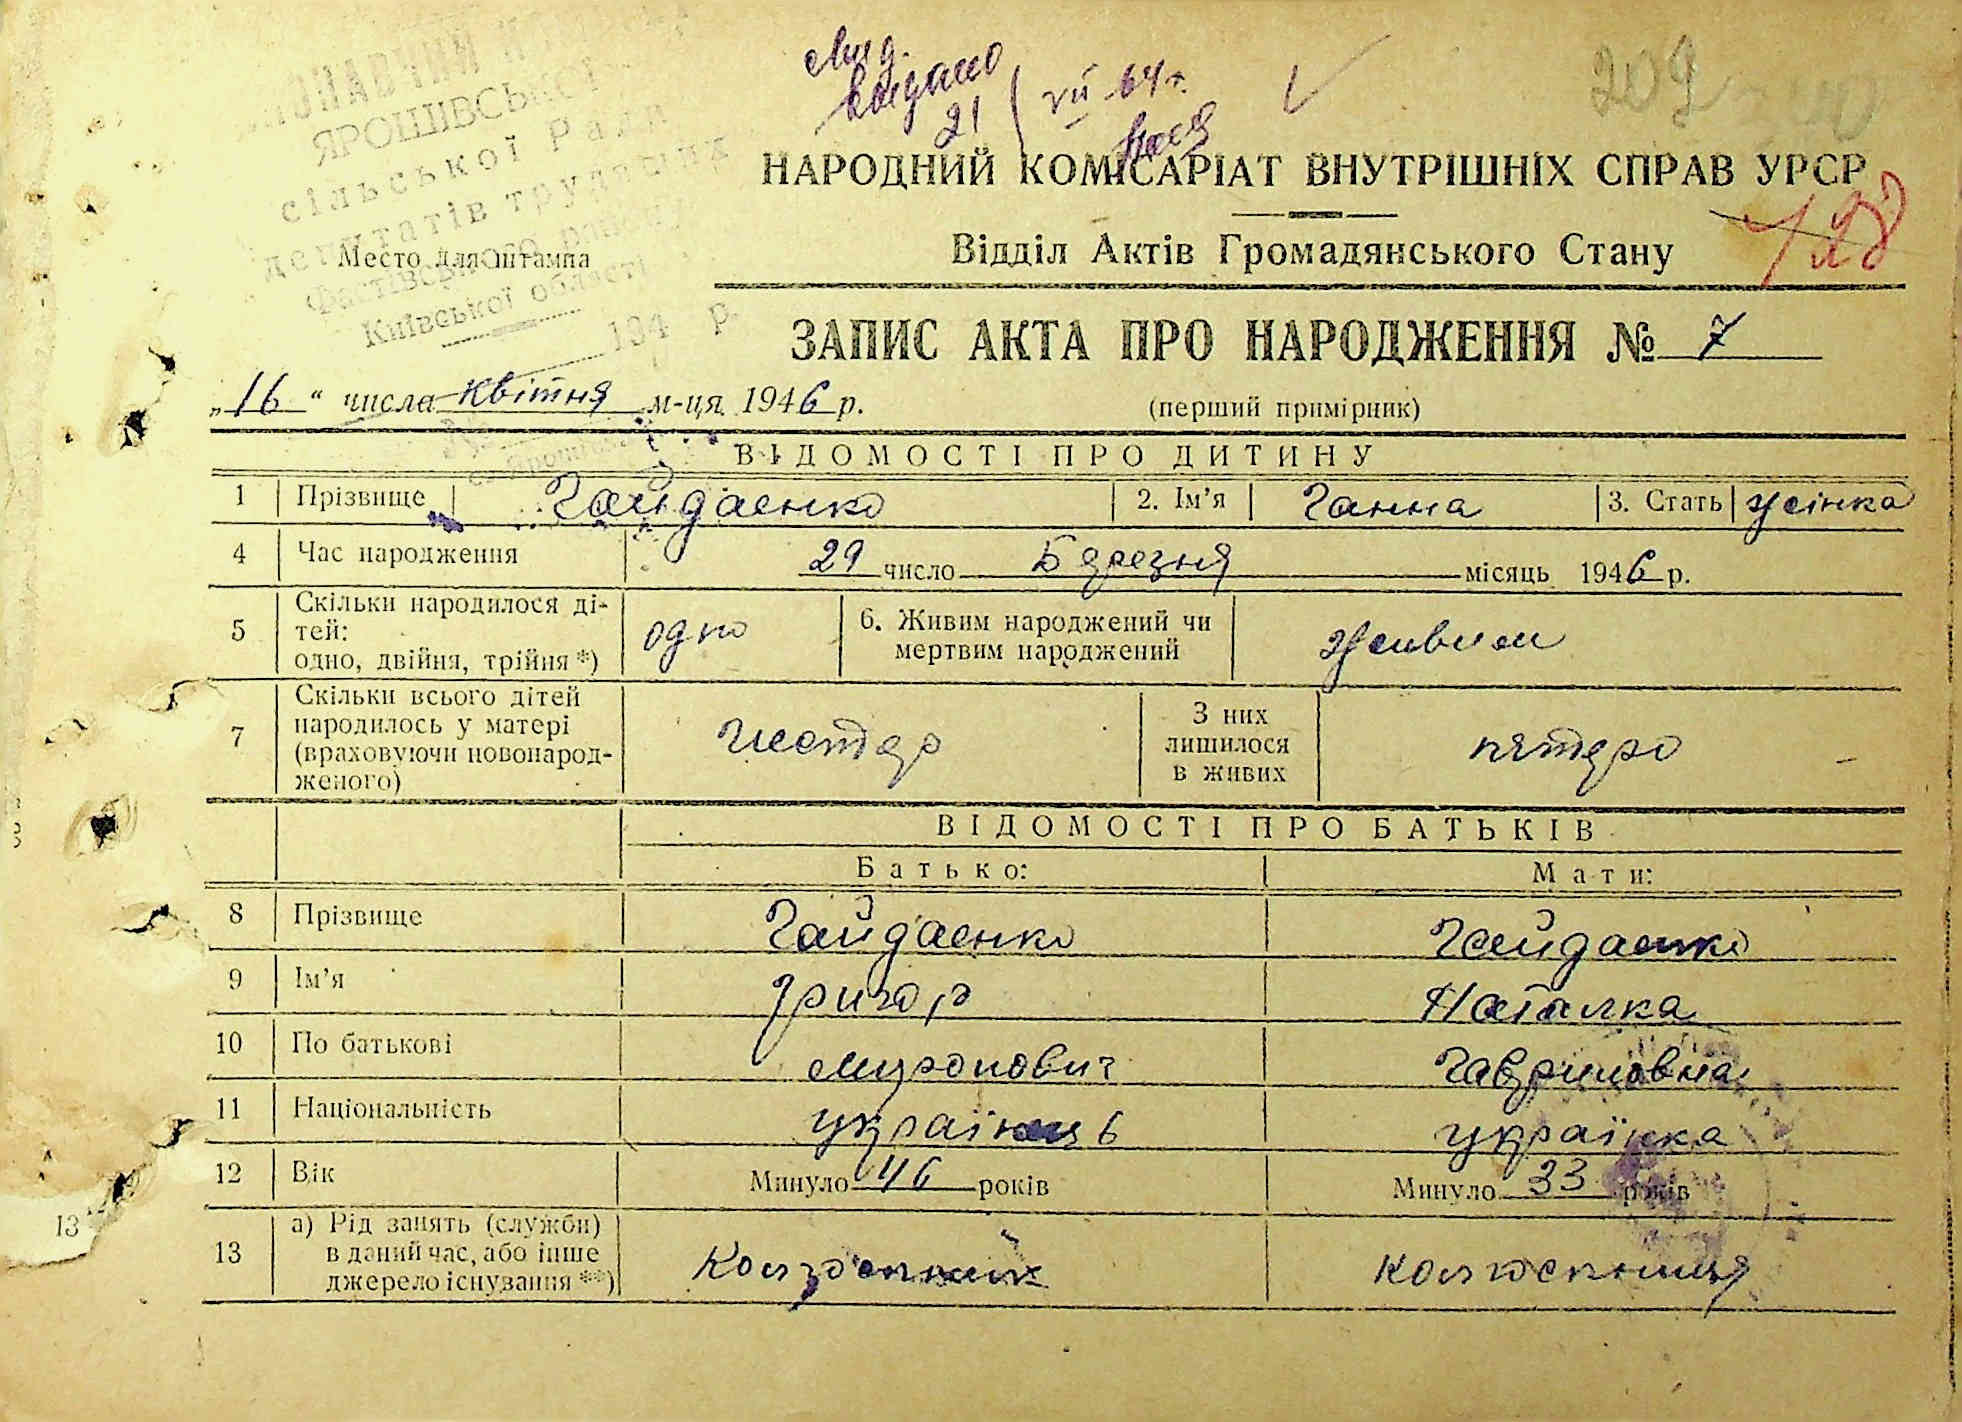 видано
21 VII 64 р.
209
НАРОДНИЙ КОМІСАРІАТ ВНУТРІШНІХ СПРАВ УРСР
ЯРОШІВСЬКОЇ
сільської Ради
депутатів трудящих
Место для штампа
Фастівського району
Київської області
194 р.
Відділ Актів Громадянського Стану
ЗАПИС АКТА ПРО НАРОДЖЕННЯ № 7
„16“ числа квітня м-ця 1946 р.
(перший примірник)
ВІДОМОСТІ ПРО ДИТИНУ
1 Прізвище Гайдаенко 2. Ім’я Ганна 3. Стать жінка
4 Час народження 29 число Березня місяць 1946 р.
5 Скільки народилося ді-
тей:
одно, двійня, трійня *) одно 6. Живим народжений чи
мертвим народжений живим
7 Скільки всього дітей
народилось у матері
(враховуючи новонарод-
женого) шестеро З них
лишилося
в живих пятеро
ВІДОМОСТІ ПРО БАТЬКІВ
Батько: Мати:
8 Прізвище Гайдаенко Гайдаенко
9 Ім’я Григор Наталка
10 По батькові Миронович Гавриловна
11 Національність українець українка
12 Вік Минуло 46 років Минуло 33 років
13 а) Рід занять (служби)
в даний час, або інше
джерело існування **) Колгоспник колгоспниця
13